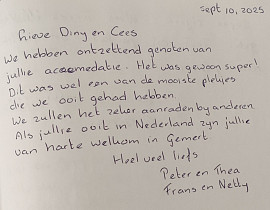 Sept 10, 2025
Lieve Diny en Cees
We hebben ontzettend genoten van
jullie accomedatie. Het was gewoon super!
Dit was wel een van de mooiste plekjes
die we ooit gehad hebben.
We zullen het zeker aanraden by anderen.
Als jullie ooit in Nederland zyn jullie
van harte welkom in Gemert
Heel veel liefs
Peter en Thea
Frans en Netty